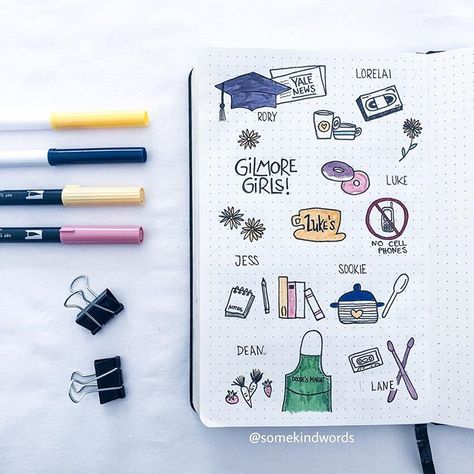 LORELAI
YALE
NEWS
RORY
GILMORE
GIRLS!
LUKE
Luke's
NO CELL
PHONES
JESS
SOOKIE
NOTES
DEAN
DOOSE'S MARKET
LANE
@somekindwords